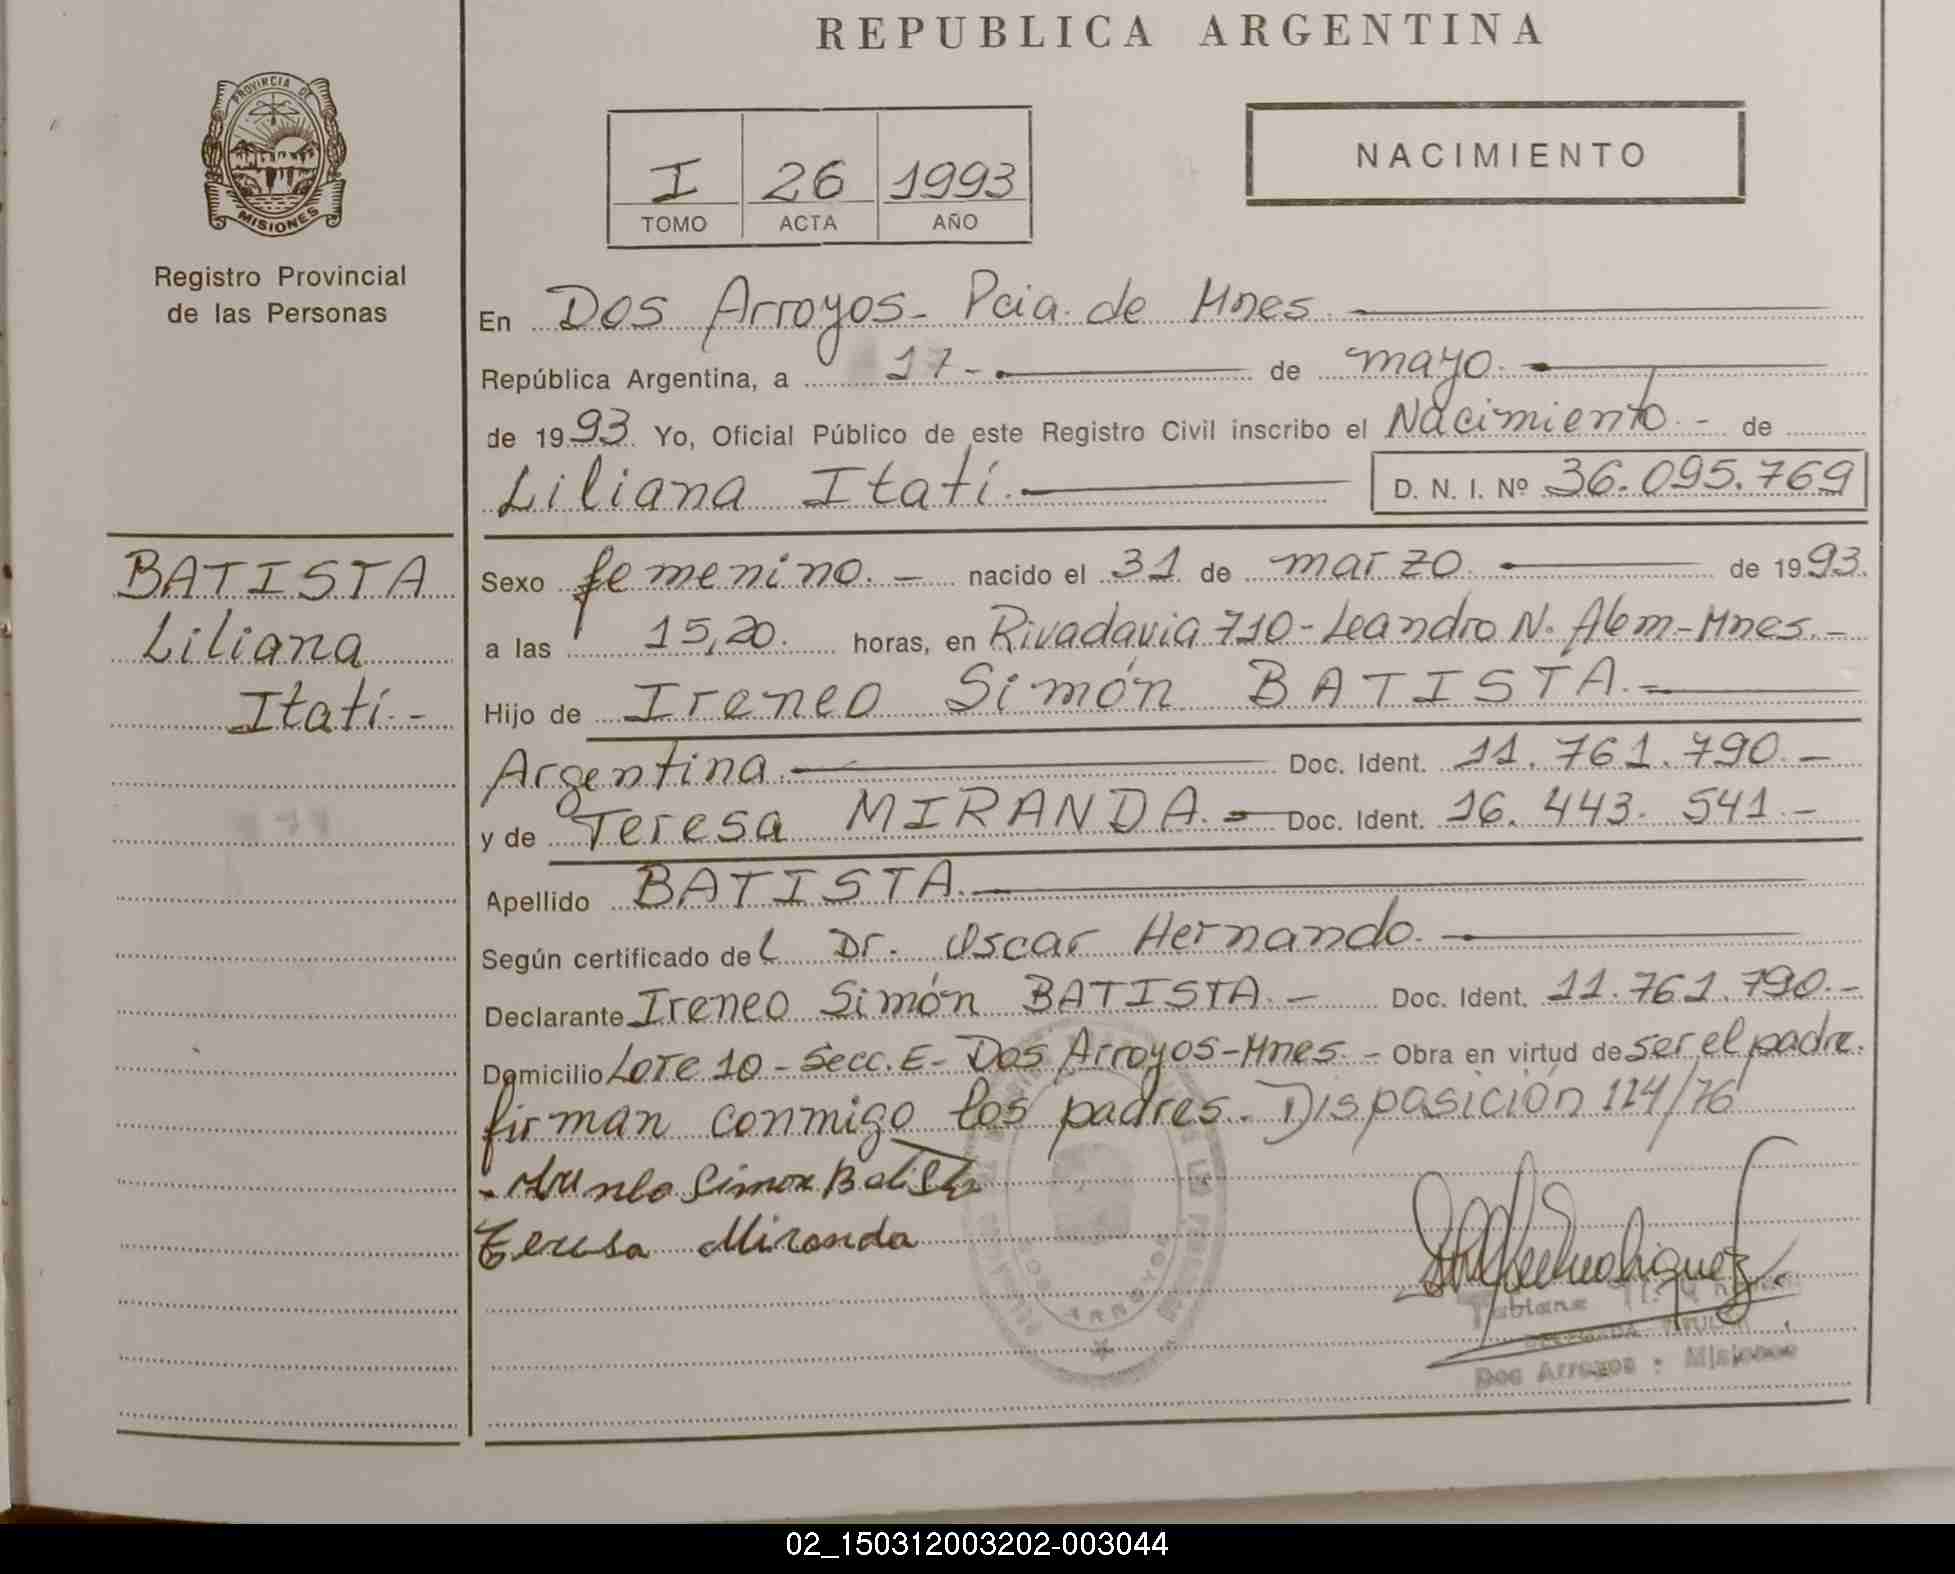 REPUBLICA ARGENTINA
PROVINCIA DE
MISIONES
Registro Provincial
de las Personas
I 26 1993
TOMO ACTA AÑO
NACIMIENTO
En Dos Arroyos - Pcia. de Mnes
República Argentina, a 17 - de mayo.
de 1993. Yo, Oficial Público de este Registro Civil inscribo el Nacimiento. - de
Liliana Itatí. D. N. I. Nº 36.095.769
BATISTA
Liliana
Itatí. -
Sexo femenino. - nacido el 31 de marzo. de 1993.
a las 15,20. horas, en Rivadavia 710 - Leandro N. Alem - Mnes. -
Hijo de Ireneo Simón BATISTA. -
Argentina. Doc. Ident. 11.761.790. -
y de Teresa MIRANDA. - Doc. Ident. 16.443.541 -
Apellido BATISTA.
Según certificado del Dr. Oscar Hernando.
Declarante Ireneo Simón BATISTA. - Doc. Ident. 11.761.790. -
Domicilio Lote 10 - Secc. E - Dos Arroyos - Mnes. - Obra en virtud de ser el padre.
firman conmigo los padres. Disposición 114/76
Simon Batista
Teresa Miranda
Dos Arroyos : Misiones
02_150312003202-003044